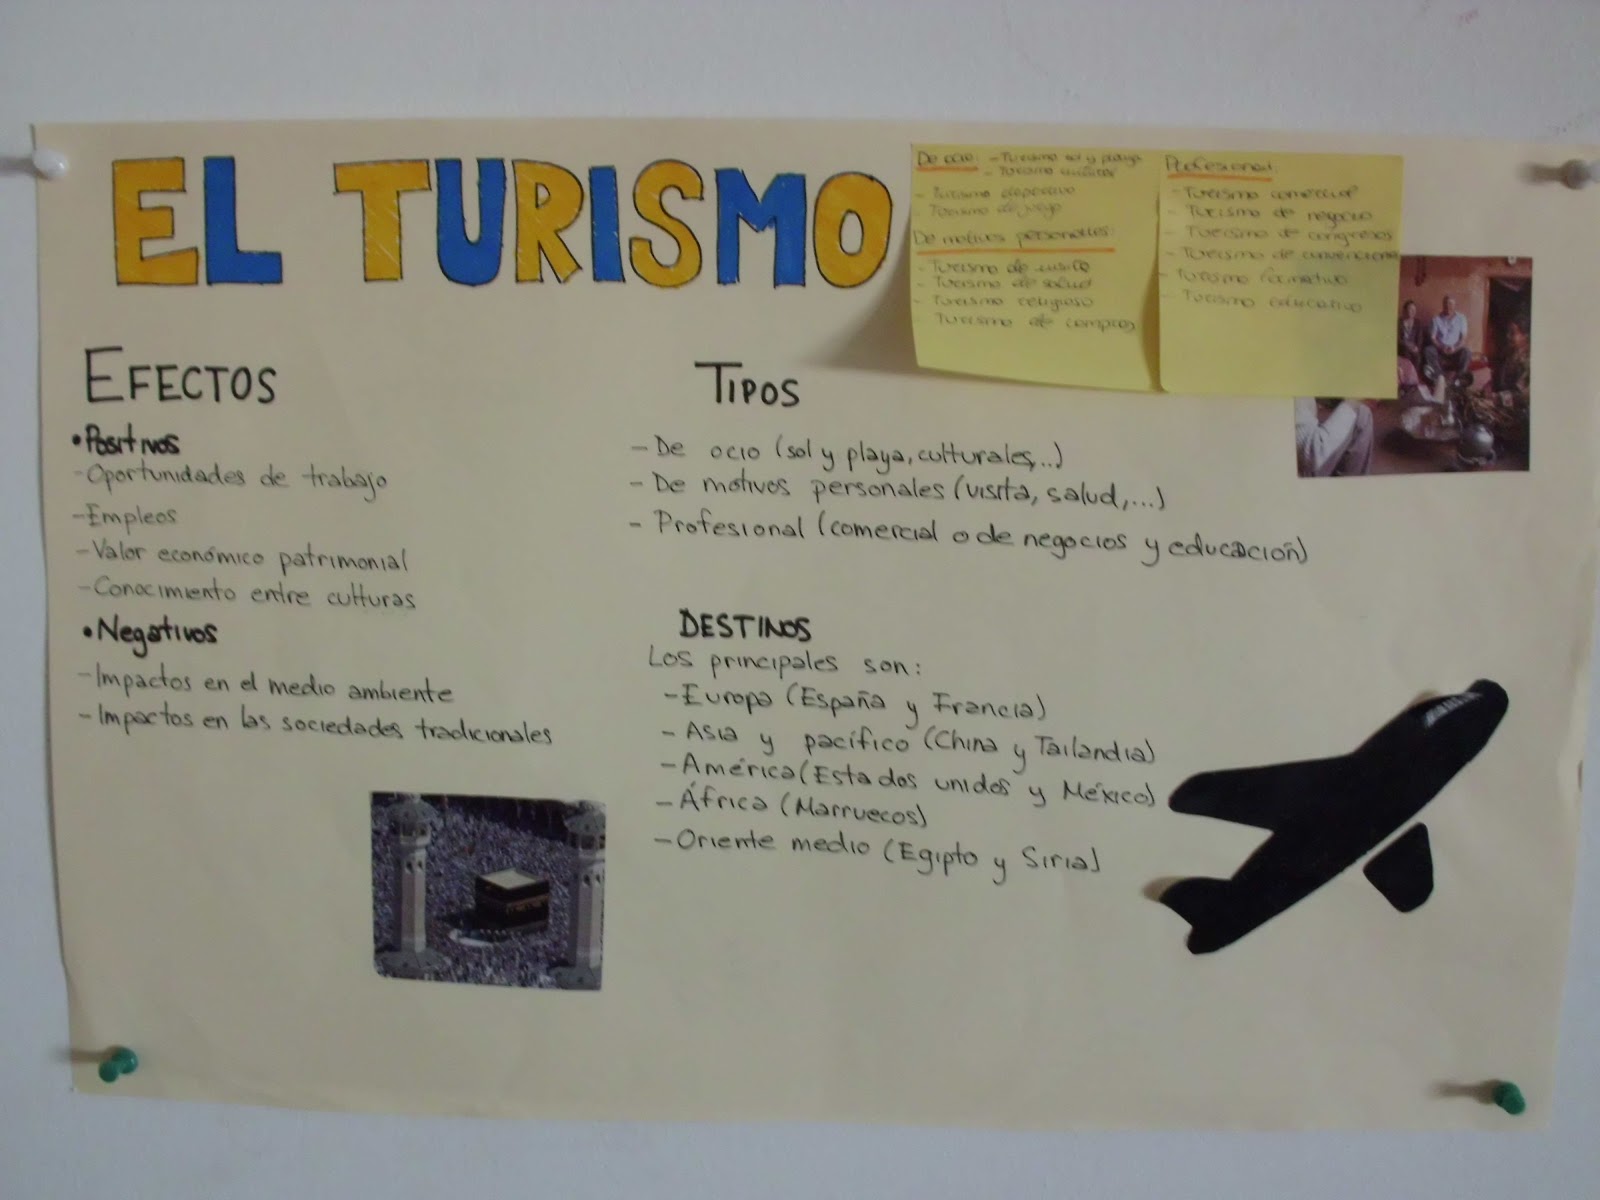 EL TURISMO
De ocio: - Turismo sol y playa
- Turismo cultural
- Turismo deportivo
- Turismo de juego
De motivos personales:
- Turismo de visita
- Turismo de salud
- Turismo religioso
- Turismo de compras
Profesional:
- Turismo comercial
- Turismo de negocio
- Turismo de congresos
- Turismo de convenciones
- Turismo formativo
- Turismo educativo
EFECTOS
• Positivos
- Oportunidades de trabajo
- Empleos
- Valor económico patrimonial
- Conocimiento entre culturas
• Negativos
- Impactos en el medio ambiente
- Impactos en las sociedades tradicionales
TIPOS
- De ocio (sol y playa, culturales,...)
- De motivos personales (visita, salud,...)
- Profesional (comercial o de negocios y educación)
DESTINOS
Los principales son:
- Europa (España y Francia)
- Asia y pacífico (China y Tailandia)
- América (Estados unidos y México)
- África (Marruecos)
- Oriente medio (Egipto y Siria)